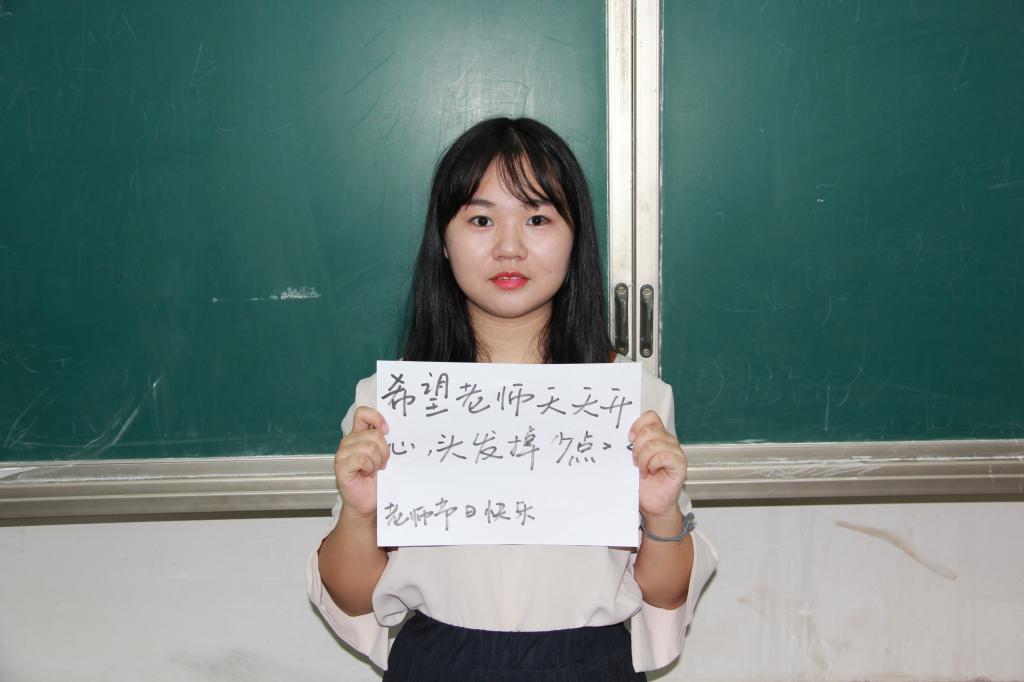 希望老师天天开
心,头发掉少点> <
老师节日快乐